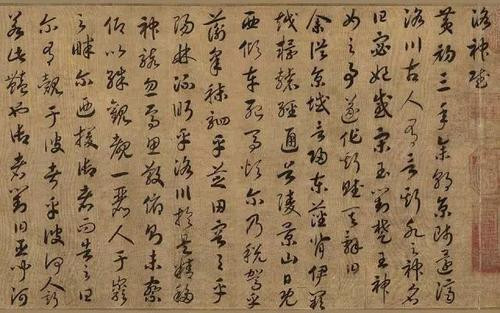 洛神賦
黃初三年余朝京師還濟
洛川古人有言斯水之神名
曰宓妃感宋玉對楚王神
女之事遂作斯賦其辭曰
余從京域言歸東藩背伊闕
越轘轅經通谷陵景山日既
西傾車殆馬煩爾乃稅駕乎
蘅皋秣駟乎芝田容與乎
陽林流眄乎洛川於是精移
神駭忽焉思散俯則未察
仰以殊觀覩一麗人于巖
之畔爾迺援御者而告之曰
爾有覿于彼者乎彼何人斯
若此豔也御者對曰臣聞河